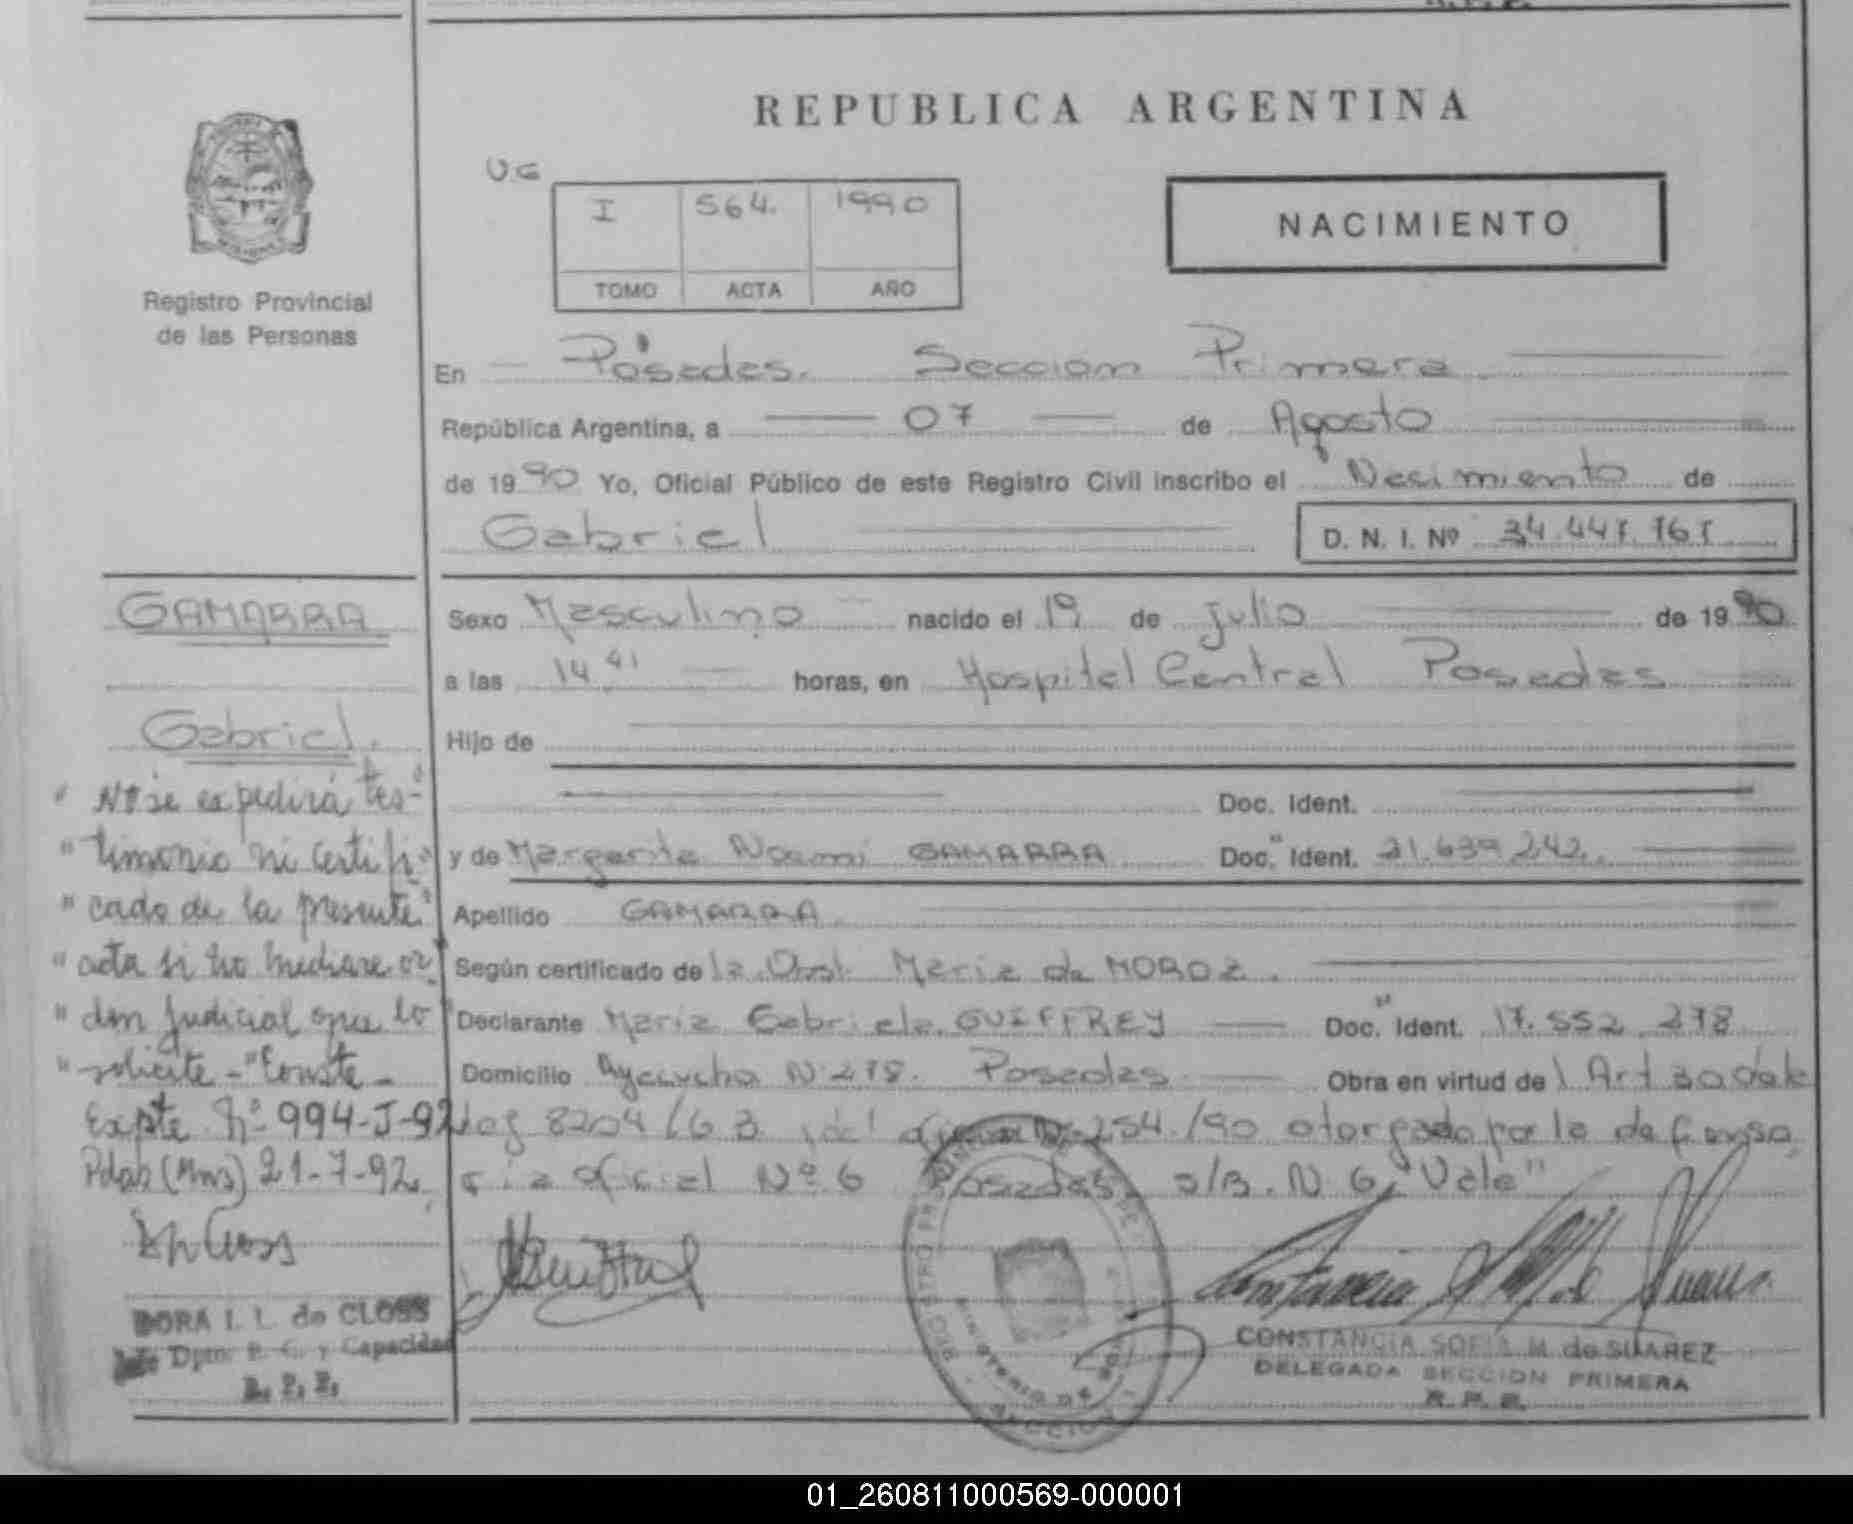 REPUBLICA ARGENTINA
UG
I 564. 1990
TOMO ACTA AÑO
NACIMIENTO
Registro Provincial
de las Personas
En Posadas. Sección Primera
República Argentina, a 07 de Agosto
de 1990 Yo, Oficial Público de este Registro Civil inscribo el Nacimiento de
Gabriel D. N. I. Nº
Sexo Masculino nacido el 19 de Julio de 1990
a las 14 41 horas, en Hospital Central Posadas
Hijo de
Doc. Ident.
y de Margarita Noemi GAMARRA Doc. Ident. 21.639.242
Apellido GAMARRA
Según certificado de la Obst. Maria de MOROZ.
Declarante Maria Gabriela GUEFFREY Doc. Ident. 17.552.278
Domicilio Ayacucho Nº 278. Posadas Obra en virtud del Art 30 de la
Ley 8204/63 254/90 otorgado por la defenso
ria oficial Nº 6 Posadas s/B. N 6, "Vale"
GAMARRA
Gabriel.
" No se expedirá tes-"
" timonio ni certifi-"
" cado de la presente"
" acta si no mediare or-
" den judicial que lo "
" solicite - "Conste -
Expte. Nº 994-J-92
Pdas (Mns) 21-7-92
DORA I. L. de CLOSS
Jefe Dpto. E. C. y Capacidad
R. P. P.
CONSTANCIA SOFIA M. de SUAREZ
DELEGADA SECCION PRIMERA
R. P. P.
01_260811000569-000001